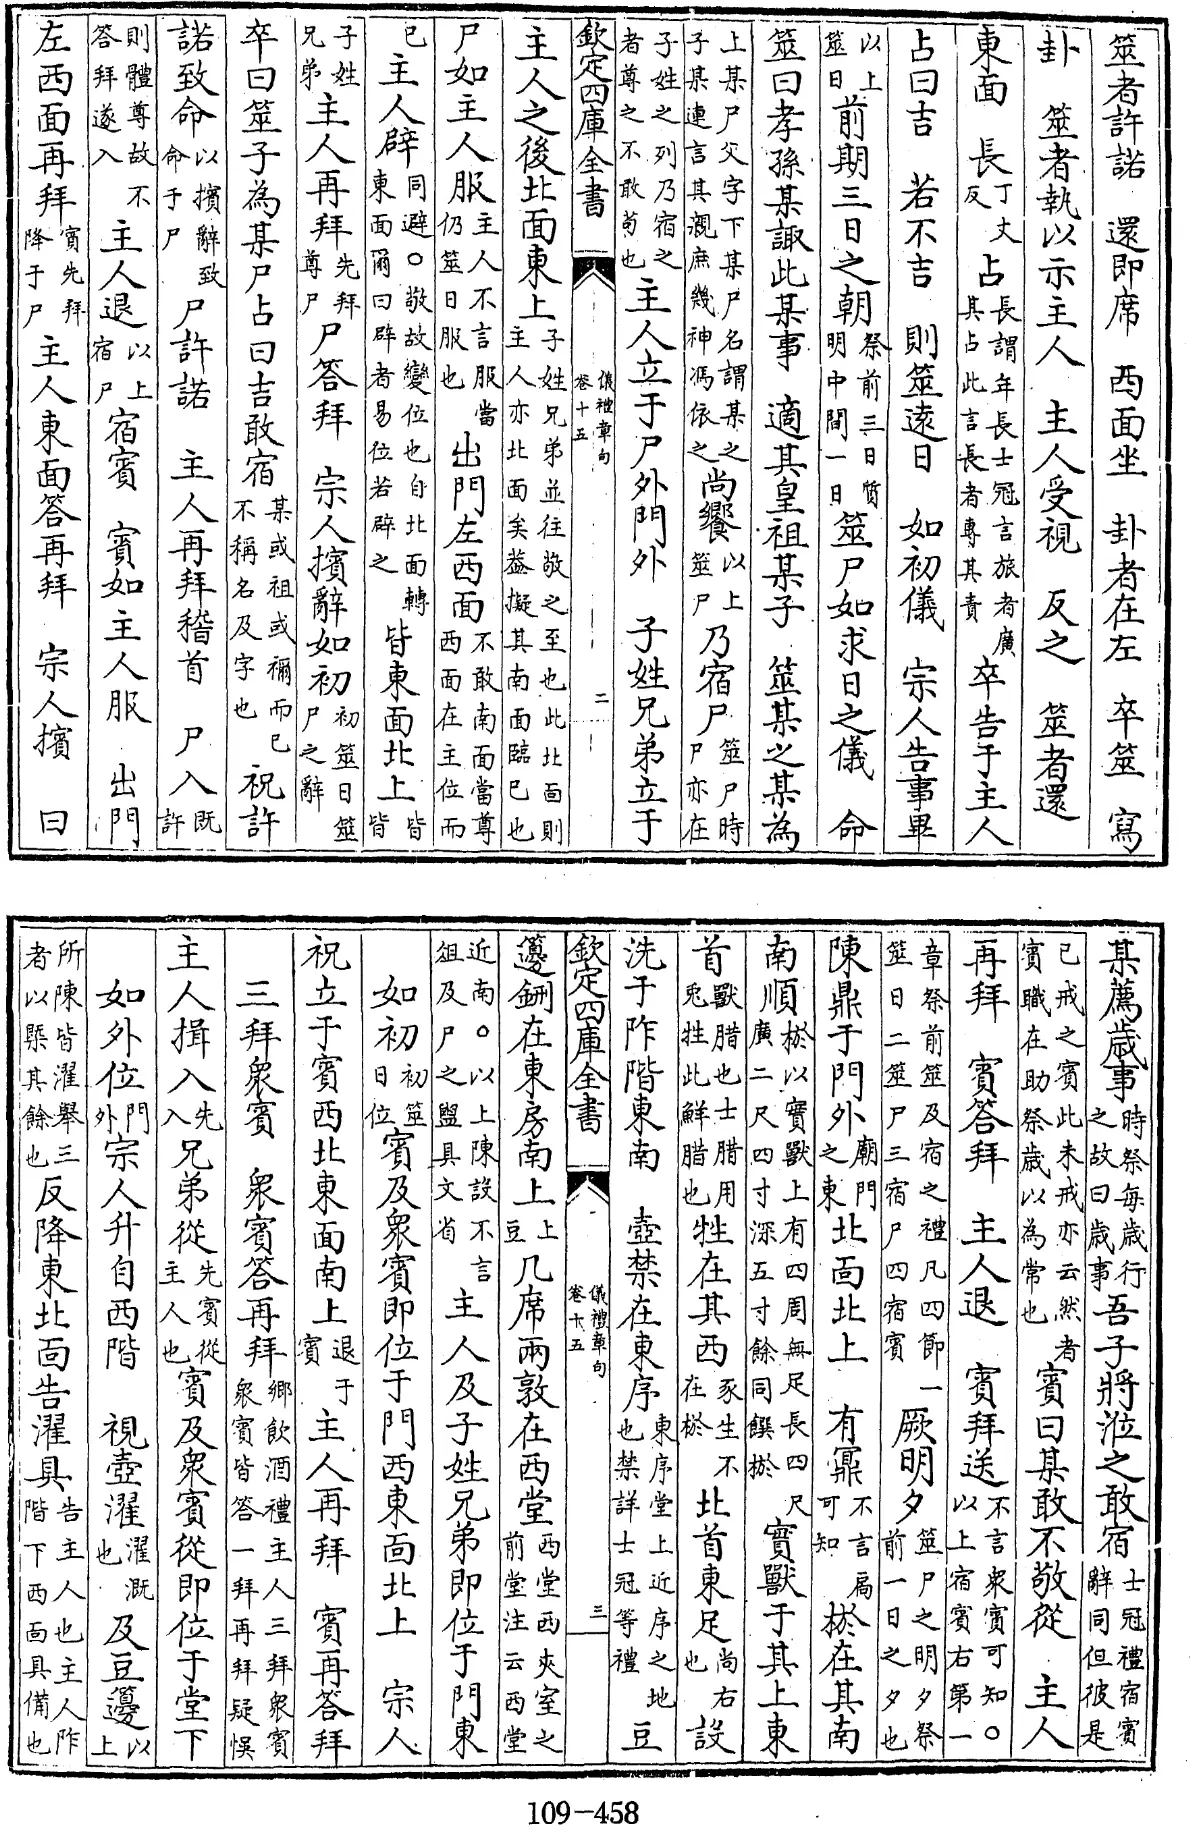 筮者許諾 還即席 西面坐 卦者在左 卒筮 寫
卦 筮者執以示主人 主人受視 反之 筮者還
東面 長丁丈反占長謂年長士冠言旅者廣其占此言長者專其責 卒告于主人
占曰吉 若不吉 則筮遠日 如初儀 宗人告事畢
以上筮日 前期三日之朝祭前三日質明中間一日 筮尸如求日之儀 命
筮曰孝孫某諏此某事 適其皇祖某子 筮某之某為
上某尸父字下某尸名謂某之子某連言其親庶幾神馮依之尚饗以上筮尸 乃宿尸筮尸時尸亦在
子姓之列乃宿之者尊之不敢苟也 主人立于尸外門外 子姓兄弟立于
欽定四庫全書 儀禮章句卷十五 二
主人之後北面東上子姓兄弟並往敬之至也此北面則主人亦北面矣葢擬其南面臨已也
尸如主人服主人不言服當仍筮日服也 出門左西面不敢南面當尊西面在主位而
已 主人辟同避○敬故變位也自北面轉東面爾曰辟者易位若辟之 皆東面北上皆皆
子姓兄弟 主人再拜先拜尊尸 尸答拜 宗人擯辭如初初筮日筮尸之辭
卒曰筮子為某尸占曰吉敢宿某或祖或禰而已不稱名及字也 祝許
諾致命以擯辭致命于尸 尸許諾 主人再拜稽首 尸入既許
則體尊故不答拜遂入 主人退以上宿尸 宿賓 賓如主人服 出門
左西面再拜賓先拜降于尸 主人東面答再拜 宗人擯 曰
某薦歲事時祭每歲行之故曰歲事吾子將涖之敢宿士冠禮宿賓辭同但彼是
已戒之賓此未戒亦云然者賓職在助祭歲以為常也 賓曰某敢不敬從 主人
再拜 賓答拜 主人退 賓拜送不言衆賓可知○以上宿賓右第一
章祭前筮及宿之禮凡四節一筮日二筮尸三宿尸四宿賓 厥明夕筮尸之明夕祭前一日之夕也
陳鼎于門外廟門之東北面北上 有鼏不言扃可知 棜在其南
南順棜以實獸上有四周無足長四尺廣二尺四寸深五寸餘同饌棜 實獸于其上東
首獸腊也士腊用兎牲此鮮腊也牲在其西豕生不在棜 北首東足尚右也 設
洗于阼階東南 壺禁在東序東序堂上近序之地也禁詳士冠等禮 豆
欽定四庫全書 儀禮章句卷十五 三
籩鉶在東房南上上豆几席兩敦在西堂西堂西夾室之前堂注云西堂
近南○以上陳設不言俎及尸之盥具文省 主人及子姓兄弟即位于門東
如初初筮日位 賓及衆賓即位于門西東面北上 宗人
祝立于賓西北東面南上退于賓 主人再拜 賓再答拜
三拜衆賓 衆賓答再拜鄉飲酒禮主人三拜衆賓衆賓皆答一拜再拜疑悞
主人揖入先入兄弟從先賓從主人也賓及衆賓從即位于堂下
如外位門外宗人升自西階 視壺濯濯溉也 及豆籩以上
所陳皆濯舉三者以槩其餘也反降東北面告濯具告主人也主人阼階下西面具備也
109-458